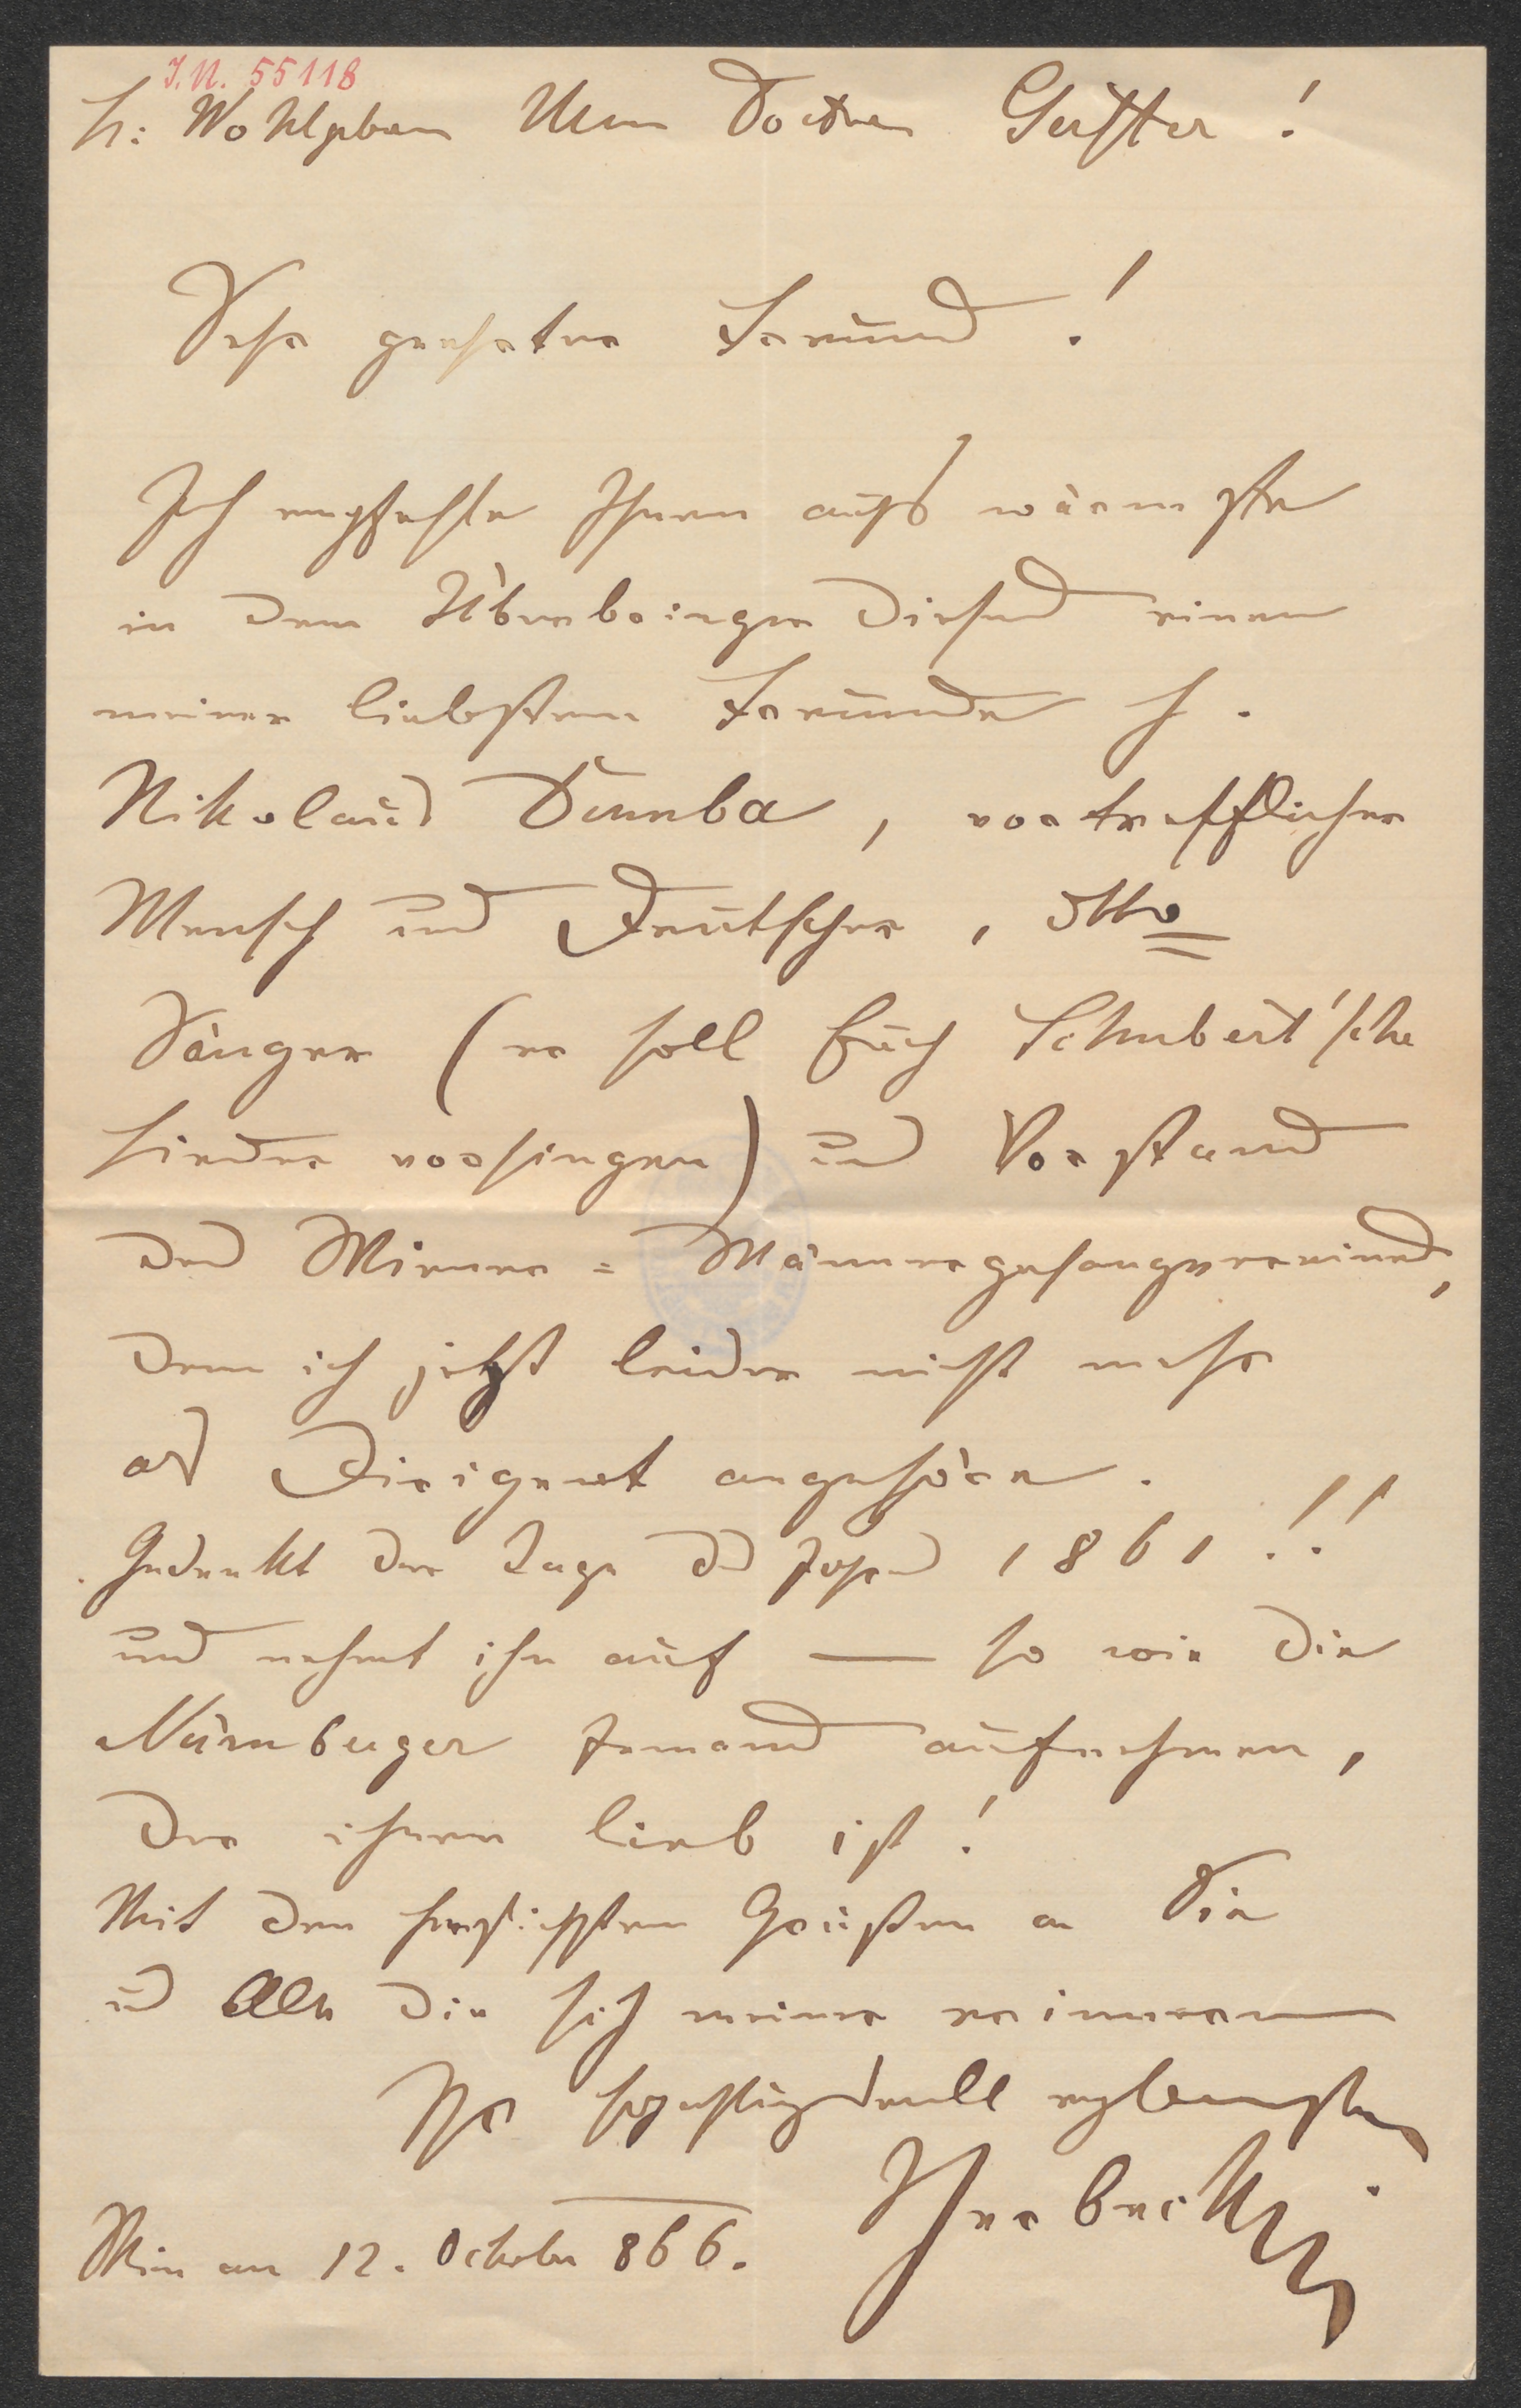 I.N. 55118
Sr: Wohlgeboren Herrn Doctor Gerster!
Sehr geehrter Freund!
Ich empfehle Ihnen aufs wärmste
in dem Überbringer dieses einen
meiner liebsten Freunde H.
Nikolaus Dumba, vortrefflicher
Mensch und Deutscher, dtto
Sänger (er soll Euch Schubert'sche
Lieder vorsingen) und Vorstand
des Wiener=Männergesangvereines,
dem ich jetzt leider nicht mehr
als Dirigent angehöre.
Gedenkt der Tage des Jahres 1861!!
und nehmt ihn auf — so wie die
Nürnberger Jemand aufnehmen,
der ihnen lieb ist!
Mit den herzlichsten Grüßen an Sie
und Alle die sich meiner erinnern
Ihr hochachtungsvoll ergebenster
Herbeck
Wien am 12. October 866.